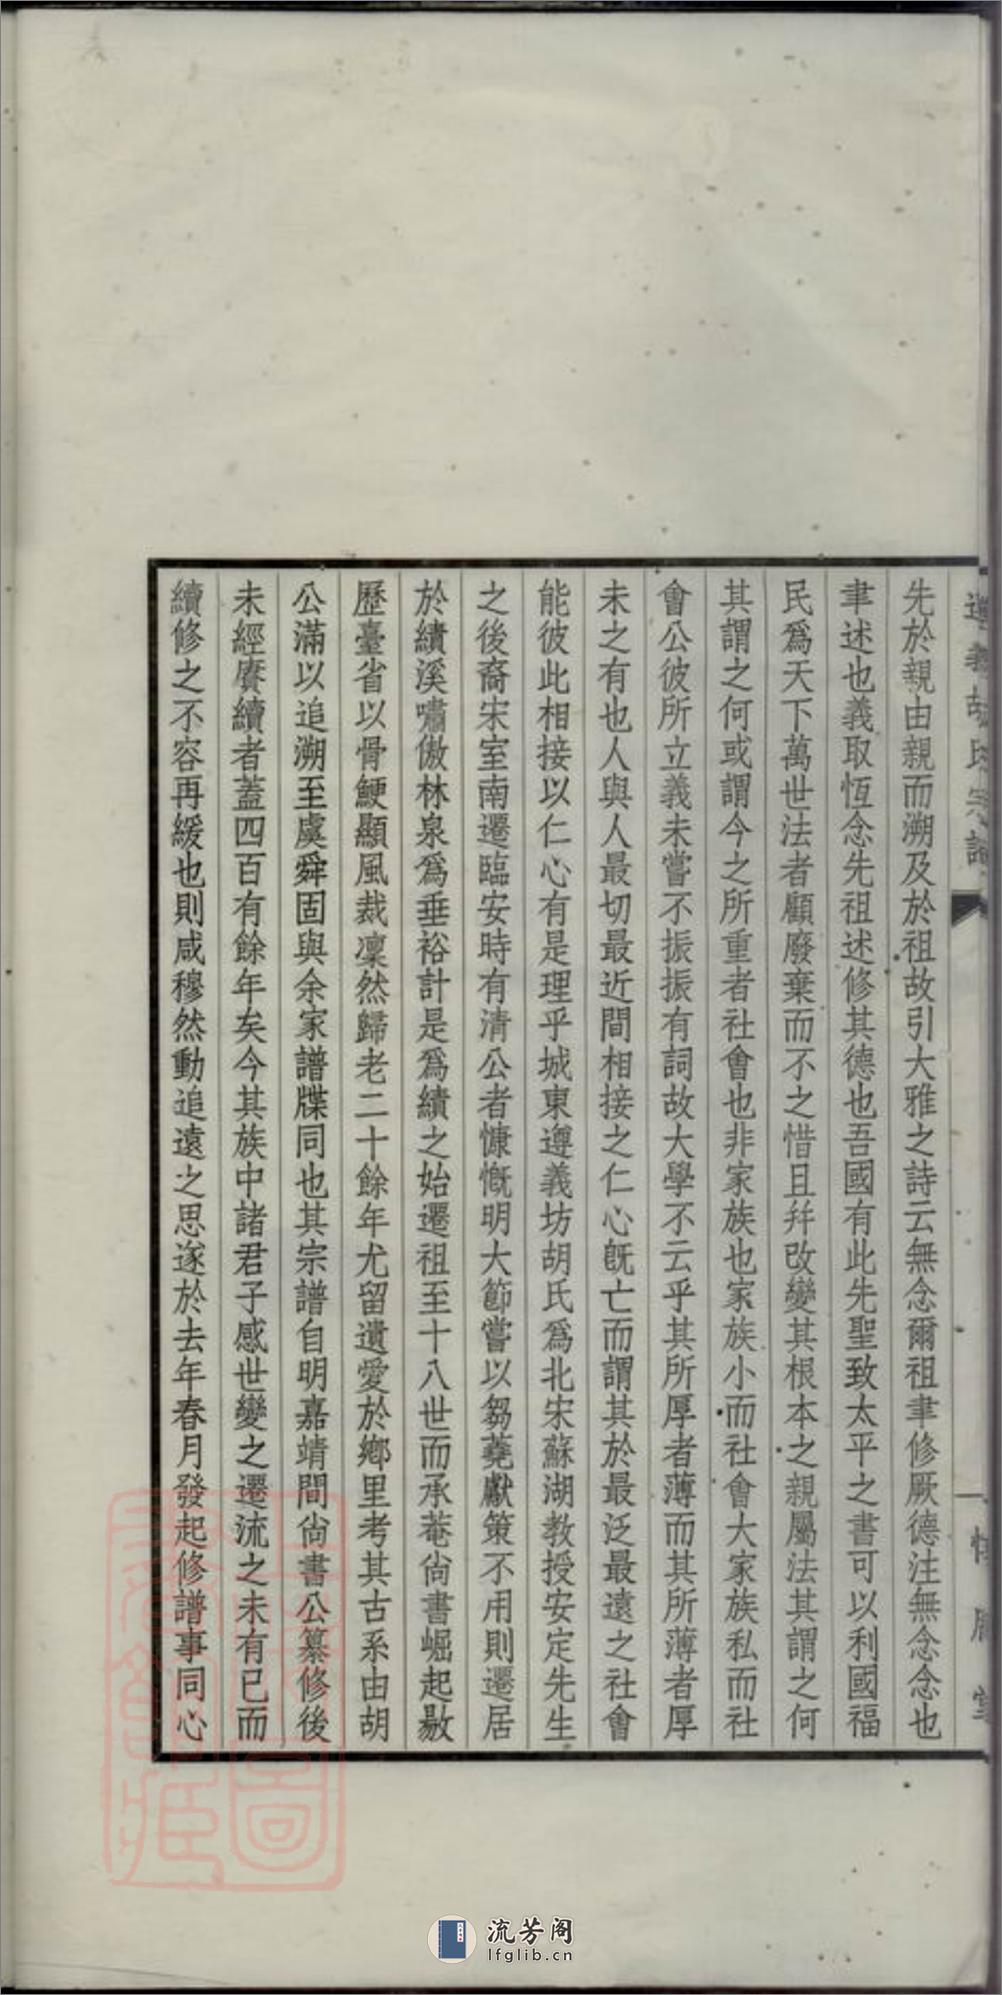 遵義胡氏宗譜
一
先於親由親而溯及於祖故引大雅之詩云無念爾祖聿修厥德注無念念也
聿述也義取恆念先祖述修其德也吾國有此先聖致太平之書可以利國福
民爲天下萬世法者顧廢棄而不之惜且幷改變其根本之親屬法其謂之何
其謂之何或謂今之所重者社會也非家族也家族小而社會大家族私而社
會公彼所立義未嘗不振振有詞故大學不云乎其所厚者薄而其所薄者厚
未之有也人與人最切最近間相接之仁心旣亡而謂其於最泛最遠之社會
能彼此相接以仁心有是理乎城東遵義坊胡氏爲北宋蘇湖教授安定先生
之後裔宋室南遷臨安時有清公者慷慨明大節嘗以芻蕘獻策不用則遷居
於績溪嘯傲林泉爲垂裕計是爲績之始遷祖至十八世而承菴尙書崛起敭
歷臺省以骨鯁顯風裁凜然歸老二十餘年尤留遺愛於鄉里考其古系由胡
公滿以追溯至虞舜固與余家譜牒同也其宗譜自明嘉靖間尙書公纂修後
未經賡續者蓋四百有餘年矣今其族中諸君子感世變之遷流之未有已而
續修之不容再緩也則咸穆然動追遠之思遂於去年春月發起修譜事同心
流芳阁
lfglib.cn